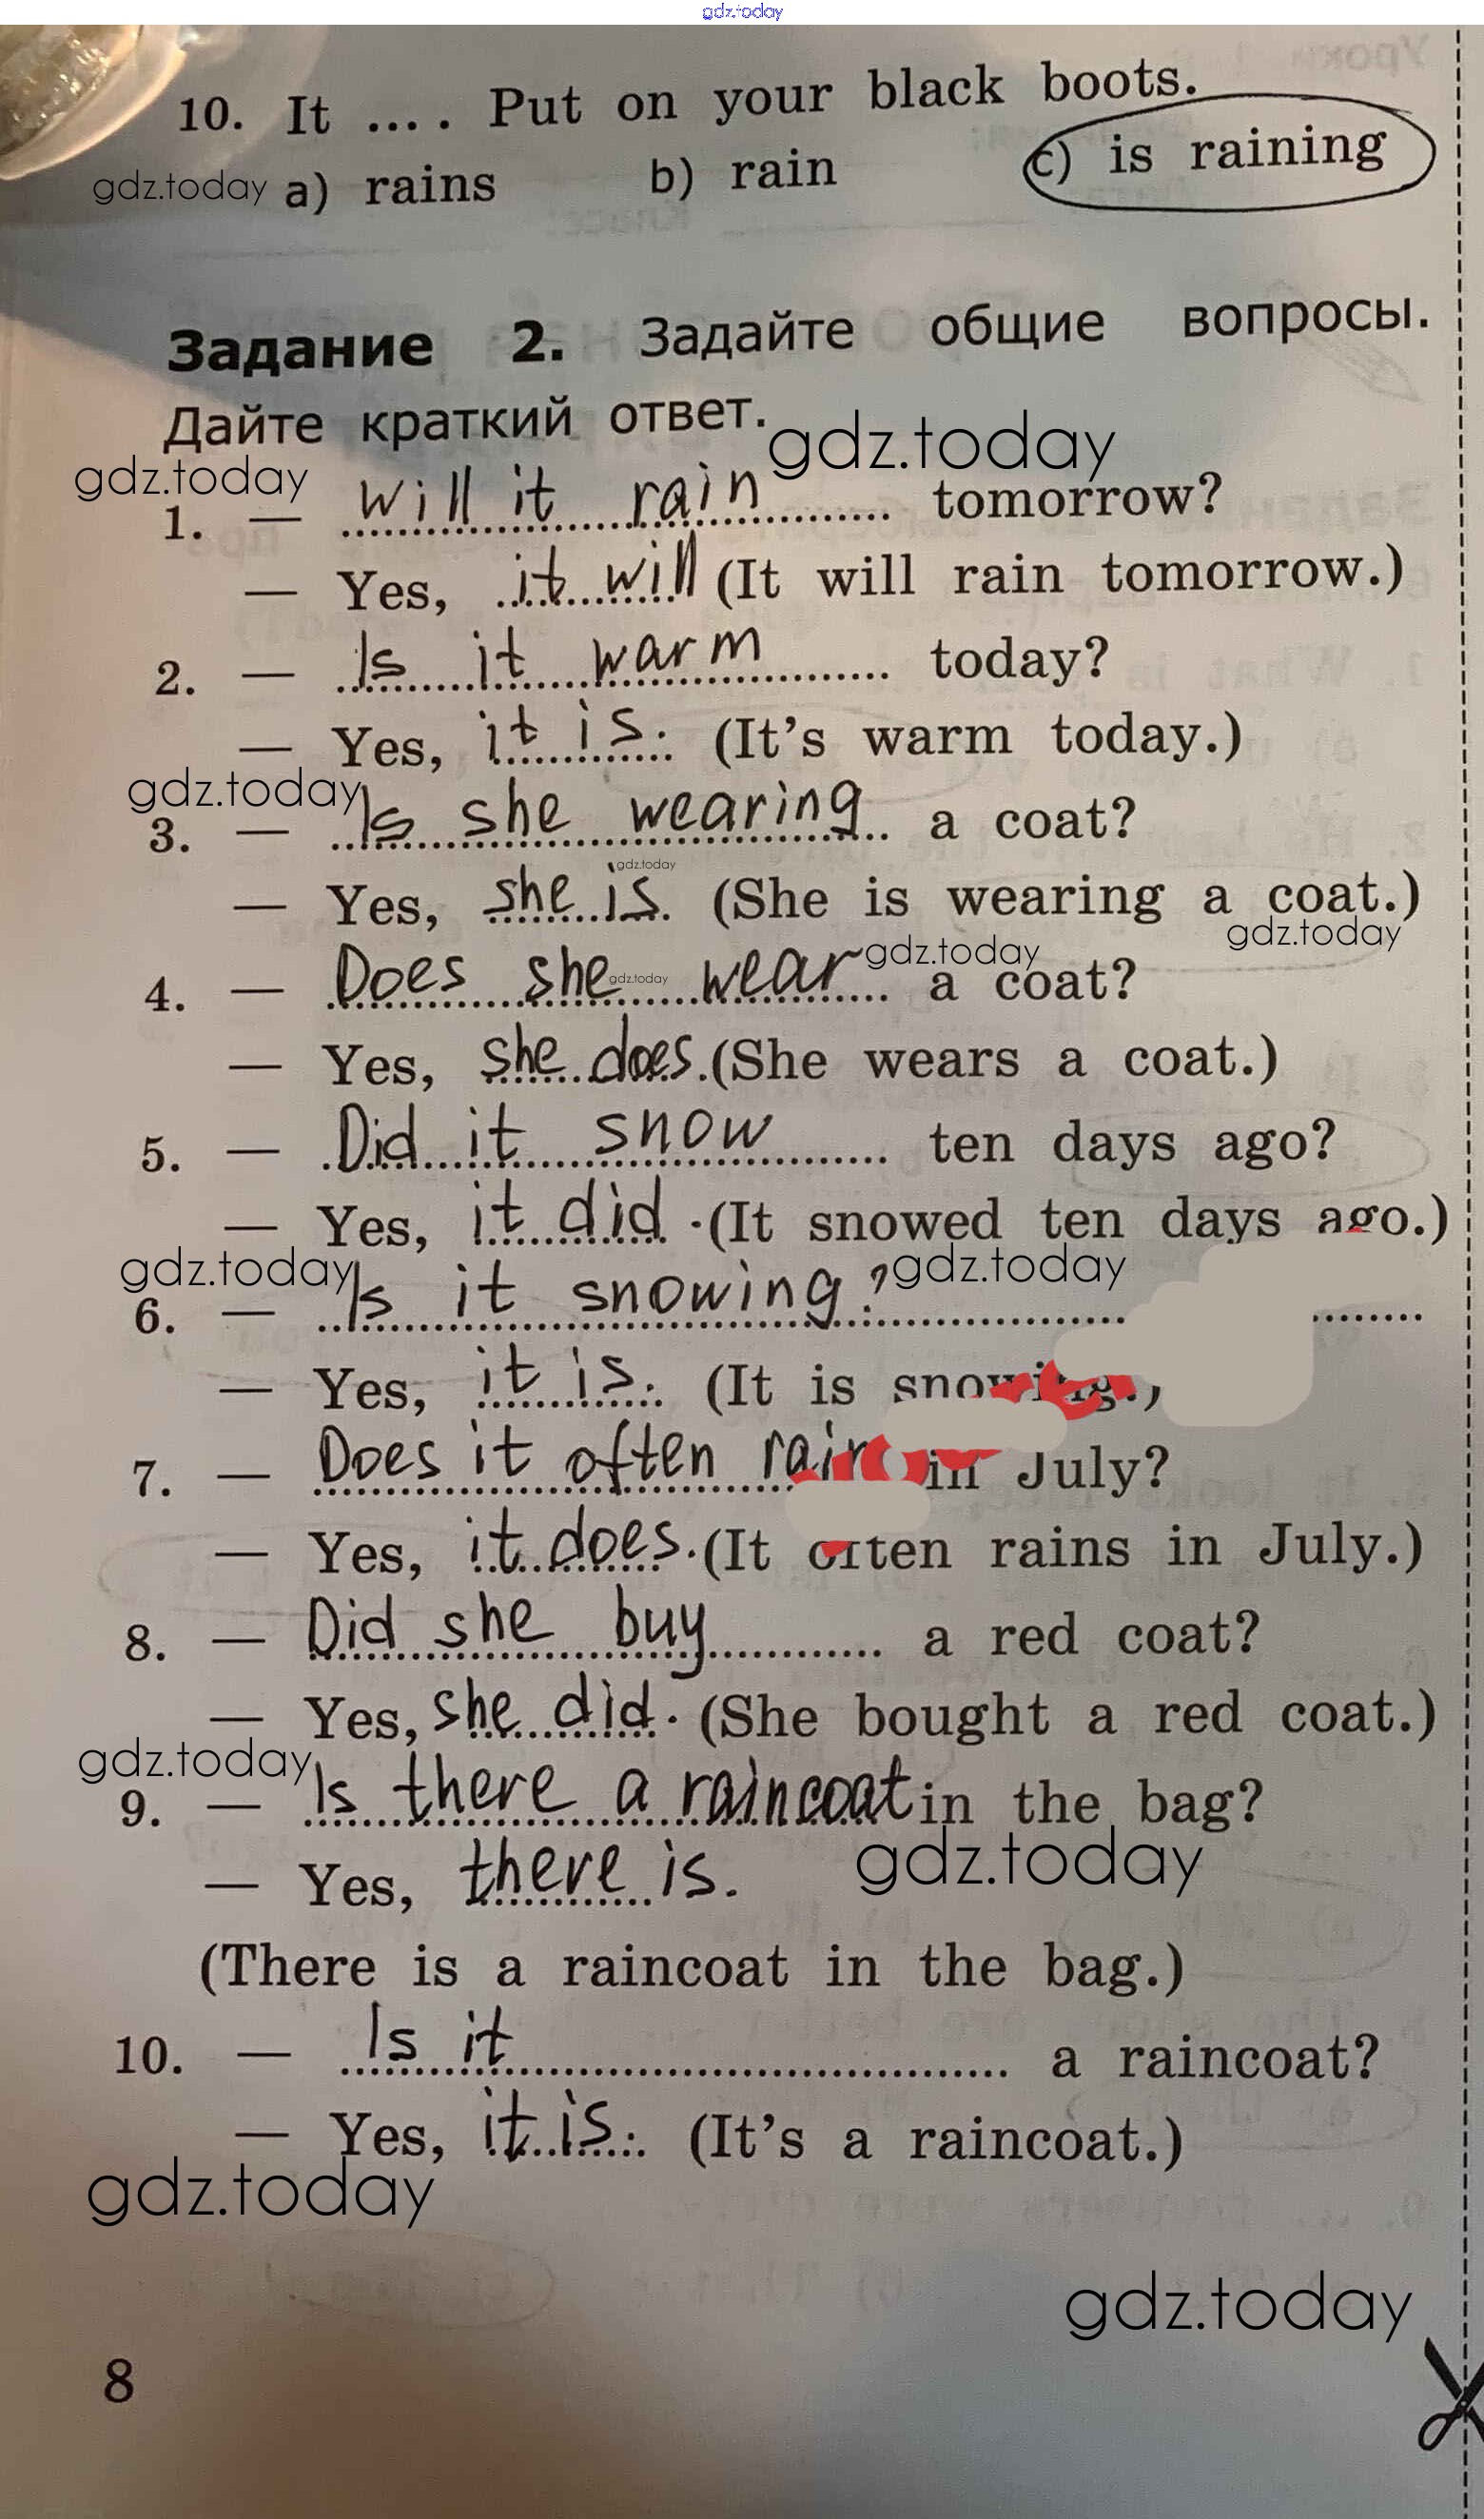 gdz.today
10. It .... Put on your black boots.
gdz.today a) rains b) rain c) is raining
Задание 2. Задайте общие вопросы.
Дайте краткий ответ. gdz.today
gdz.today
1. — Will it rain tomorrow?
— Yes, it will (It will rain tomorrow.)
2. — Is it warm today?
— Yes, it is. (It's warm today.)
gdz.today
3. — Is she wearing a coat?
gdz.today
— Yes, she is. (She is wearing a coat.)
gdz.today
gdz.today
4. — Does she wear a coat?
gdz.today
— Yes, she does. (She wears a coat.)
5. — Did it snow ten days ago?
— Yes, it did. (It snowed ten days ago.)
gdz.today gdz.today
6. — Is it snowing?
— Yes, it is. (It is snowing.)
7. — Does it often rain in July?
— Yes, it does. (It often rains in July.)
8. — Did she buy a red coat?
— Yes, she did. (She bought a red coat.)
gdz.today
9. — Is there a raincoat in the bag?
— Yes, there is. gdz.today
(There is a raincoat in the bag.)
10. — Is it a raincoat?
— Yes, it is. (It's a raincoat.)
gdz.today
gdz.today
8